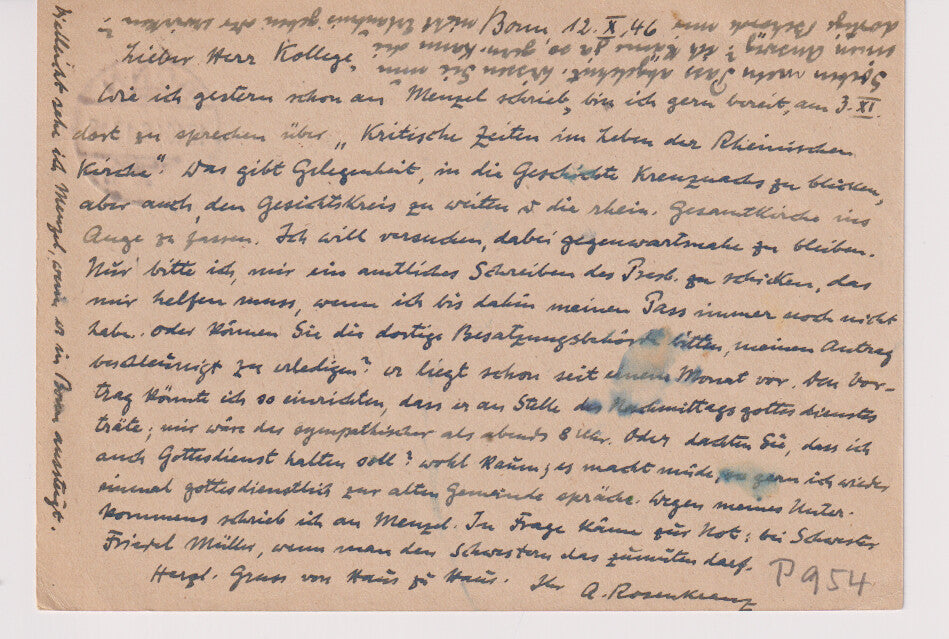 Bonn, 12. X. 46
Lieber Herr Kollege,
Wie ich gestern schon an Menzel schrieb, bin ich gern bereit, am 3. XI.
dort zu sprechen über „Kritische Zeiten im Leben der Rheinischen
Kirche“. Das gibt Gelegenheit, in die Geschichte Kreuznachs zu blicken,
aber auch den Gesichtskreis zu weiten & die rhein. Gesamtkirche ins
Auge zu fassen. Ich will versuchen, dabei gegenwartsnahe zu bleiben.
Nur bitte ich, mir ein amtliches Schreiben des Presb. zu schicken, das
mir helfen muss, wenn ich bis dahin meinen Pass immer noch nicht
habe. Oder können Sie die dortige Besatzungsbehörde bitten, meinen Antrag
beschleunigt zu erledigen? Er liegt schon seit einem Monat vor. Den Vor-
trag könnte ich so einrichten, dass er an Stelle des Nachmittagsgottesdienstes
träte; mir wäre das sympathischer als abends 8 Uhr. Oder dachten Sie, dass ich
auch Gottesdienst halten soll? Wohl kaum; es macht müde, so gern ich wieder
einmal gottesdienstlich zur alten Gemeinde spräche. Wegen meines Unter-
kommens schrieb ich an Menzel. In Frage käme zur Not: bei Schwester
Friedel Müller, wenn man den Schwestern das zumuten darf.
Herzl. Gruss von Haus zu Haus. Ihr A. Rosenkranz
P 954
Vielleicht sehe ich Menzel, wenn er in Bonn aussteigt.
Soeben wurde Pass abgelehnt. Wissen Sie nun
einen Ausweg? Ich käme ja so gern. Kann die
dortige Behörde mir nicht Erlaubnis geben oder erwirken?